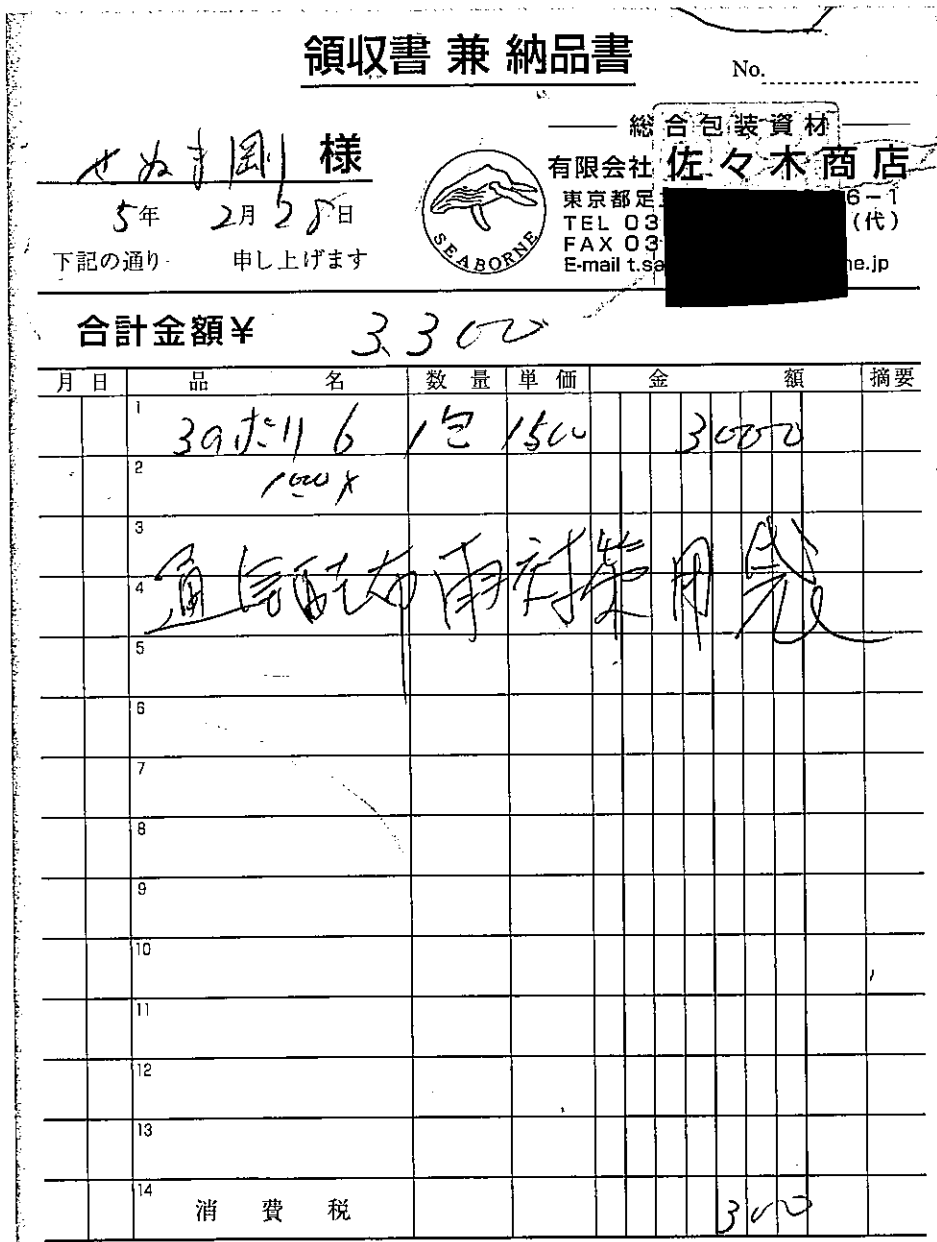 領収書 兼 納品書
No.
せぬま剛 様
5年 2月 28日
下記の通り 申し上げます
SEABORNE
総合包装資材
有限会社 佐々木商店
東京都足 6-1
TEL 03 (代)
FAX 03
E-mail t.sa ne.jp
合計金額¥ 3,300
月 日 品 名 数 量 単 価 金 額 摘要
1 30ポリ 6 1包 1500 3000
2
3
4 通信配布雨対策用袋
5
6
7
8
9
10
11
12
13
14 消 費 税 300